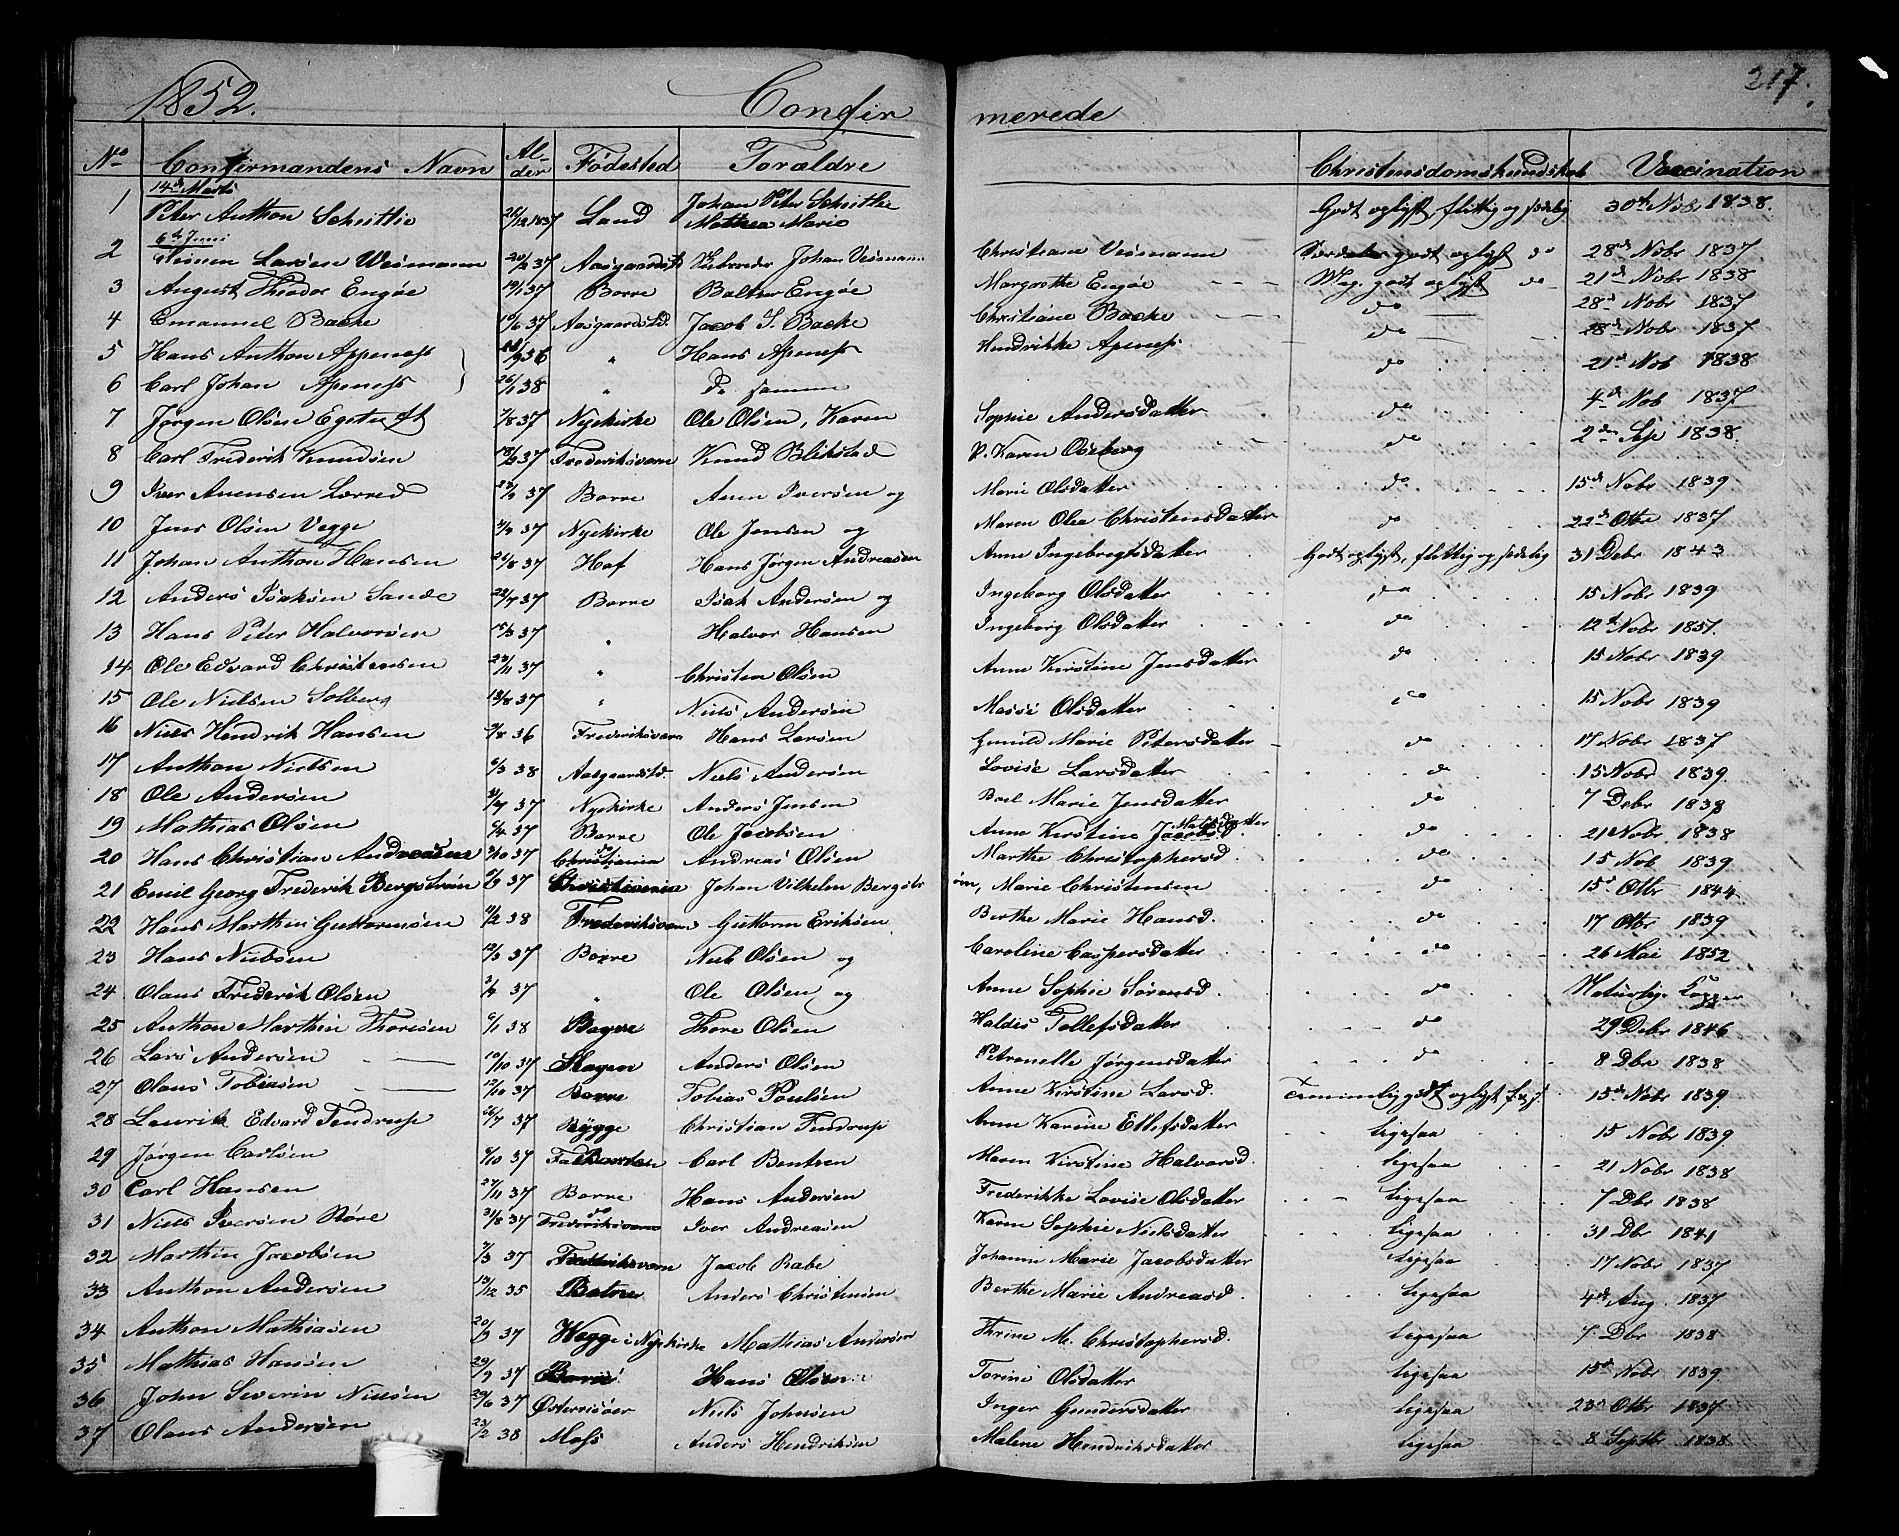 1852. Confir merede 217.
No Confirmandens Navn Alder Fødested Forældre Christendomskundskab Vaccination
14de Marts
1 Peter Anthon 26/12 1837 Land Johan Peter Mathea Marie Godt oplyst, flittig og sædelig 30te Nobr 1838.
6te Juni
2 Larsen Wesmann 20/2 37 Aasgaardstd Johan Vesmann Christiane Vesmann godt oplyst do 28de Nobr 1837
3 August Theodor Engøe 19/1 37 Borre Engøe Margrethe Engøe Meg. godt oplyst do 21de Nobr 1838
4 Emanuel Backe 10/6 37 Aasgaardstd. Jacob S. Backe Christiane Backe do 28de Nobr 1837
5 Hans Anthon Appeness /9 36 " Hans Apeness Hendrikke Apeness do 28de Nobr 1837
6 Carl Johan Apeness 26/1 38 " De samme do 21de Nob 1838
7 Jørgen Olsen /8 37 Nyekirke Ole Olsen, Karen Sophie Andersdatter do 4de Nob 1837
8 Carl Frederik Knudsen 37 Frederiksværn Knud Blikstad Karen Oseberg do 2den Sep 1838.
9 Iver 37 Borre Iversen og Marie Olsdatter do 15de Nobr 1839
10 Jens Olsen Vegge 37 Nyekirke Ole Jensen og Maren Olea Christensdatter do 22de Otbr 1837
11 Johan Anthon Hansen 26/8 37 Hof Hans Jørgen Andreasen Anne Ingebregtsdatter Godt oplyst, flittig og sædelig 31 Debr 1843
12 Anders Isaksen Sande 28/7 37 Borre Isak Andersen og Ingeborg Olsdatter do 15 Nobr 1839
13 Hans Peter Halvorsen 15/3 37 " Halvor Hansen Ingeborg Olsdatter do 12te Nobr 1851.
14 Ole Edvard Christensen 37 " Christen Olsen Anne Kirstine Jensdatter do 15 Nobr 1839
15 Ole Nielsen Solberg 13/8 37 " Niels Andersen Olsdatter do 15 Nobr 1839
16 Niels Hendrik Hansen /8 36 Frederiksværn Hans Larsen Gunild Marie Petersdatter do 17 Nobr 1837
17 Anthon Nielsen 6/3 38 Aasgaardstd. Niels Andersen Lovise Larsdatter do 15 Nobr 1839.
18 Ole Andersen 37 Nyekirke Anders Jensen Boel Marie Jensdatter do 7 Debr 1838
19 Mathias Olsen 37 Borre Ole Jacobsen Anne Kirstine do 21 Nobr 1838
20 Hans Christian Andreasen /10 37 do Christiania Andreas Olsen Marthe Christophersd. do 15 Nob 1839.
21 Emil Georg Frederik Bergstrøm /9 37 Christiania Johan Vilhelm Bergstrøm, Marie Christensen do 15de Otbr 1844.
22 Hans Marthin Guttormsen /2 38 Frederiksværn Guttorm Eriksen Berthe Marie Hansd. do 17 Otbr 1839
23 Hans Nielsen 12/3 37 Borre Niels Olsen og Caroline Caspersdatter do 26 Mai 1852
24 Olaus Frederik Olsen 37 " Ole Olsen og Anne Sophie Sørensd. do Naturlige Kopper
25 Anthon Marthin Thoresen 6/1 38 Thore Olsen Haldis Tollefsdatter do 29 Debr 1846
26 Lars Andersen 10/10 37 Anders Olsen Petronelle Jørgensdatter do 8 Dbr 1838
27 Olaus Tobiesen 12/10 37 Borre Tobias Poulsen Anne Kirstine Larsd. Temmelig godt oplyst 15de Nobr 1839.
28 Laurits Edvard Tendrup 26/7 37 Rygge Christian Tendrup Anne Karine Ellefsdatter Ligesaa 15 Nobr 1839
29 Jørgen Carlsen /10 37 Carl Bentzen Maren Kirstine Halvorsd. Ligesaa 21 Nobr 1838
30 Carl Hansen 27/11 37 Borre Hans Andersen Frederikke Lovise Olsdatter Ligesaa 7 Dbr 1838
31 Niels Iversen Røre /8 37 do Frederiksværn Iver Andreasen Karen Sophie Nielsdatter Ligesaa 31 Dbr 1841
32 Marthin Jacobsen /3 37 Frederiksværn Jacob Rabe Johanne Marie Jacobsdatter Ligesaa 17 Nobr 1837
33 Anthon Andersen 13/12 35 Anders Christensen Berthe Marie Andreasd. Ligesaa 4de Aug. 1837
34 Anthon Mathiasen 20/9 37 Vegge i Nyekirke Mathias Andersen Thrine M. Christophersd. Ligesaa 7 Dbr 1838
35 Mathias Hansen 29/9 37 Hans Olsen Torine Olsdatter Ligesaa 15de Nobr 1839
36 John Severin Nielsen 29/6 37 Østerrisøer Niels Johnsen Inger Gundersdatter Ligesaa 23de Otbr 1837
37 Olaus Andersen 23/2 38 Moss Anders Hendriksen Malene Hendriksdatter Ligesaa 8 Septbr 1838